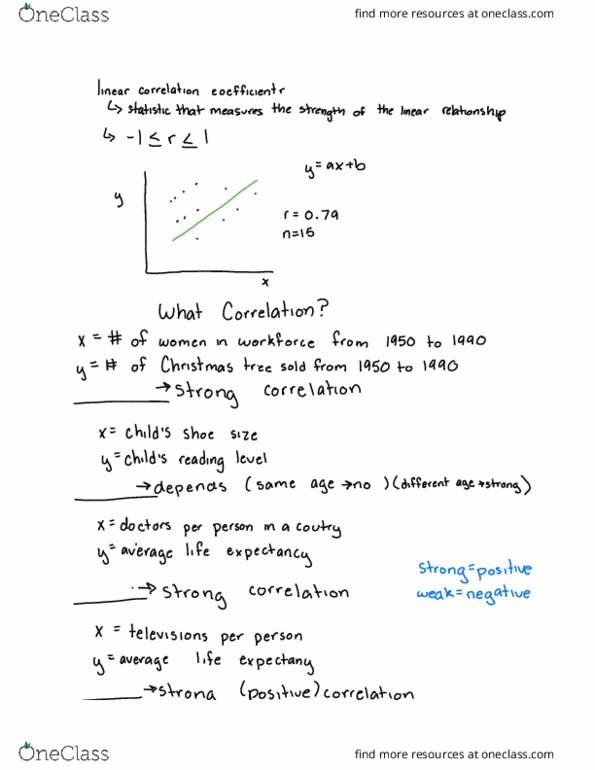 OneClass
find more resources at oneclass.com
linear correlation coefficient r
↳ statistic that measures the strength of the linear relationship
↳ -1 ≤ r ≤ 1
y = ax+b
y
r = 0.79
n=15
x
What Correlation?
x = # of women in workforce from 1950 to 1990
y = # of Christmas tree sold from 1950 to 1990
→ strong correlation
x = child's shoe size
y = child's reading level
→ depends (same age → no) (different age → strong)
x = doctors per person in a coutry
y = average life expectancy
→ strong correlation
strong = positive
weak = negative
x = televisions per person
y = average life expectany
→ strona (positive) correlation
OneClass
find more resources at oneclass.com